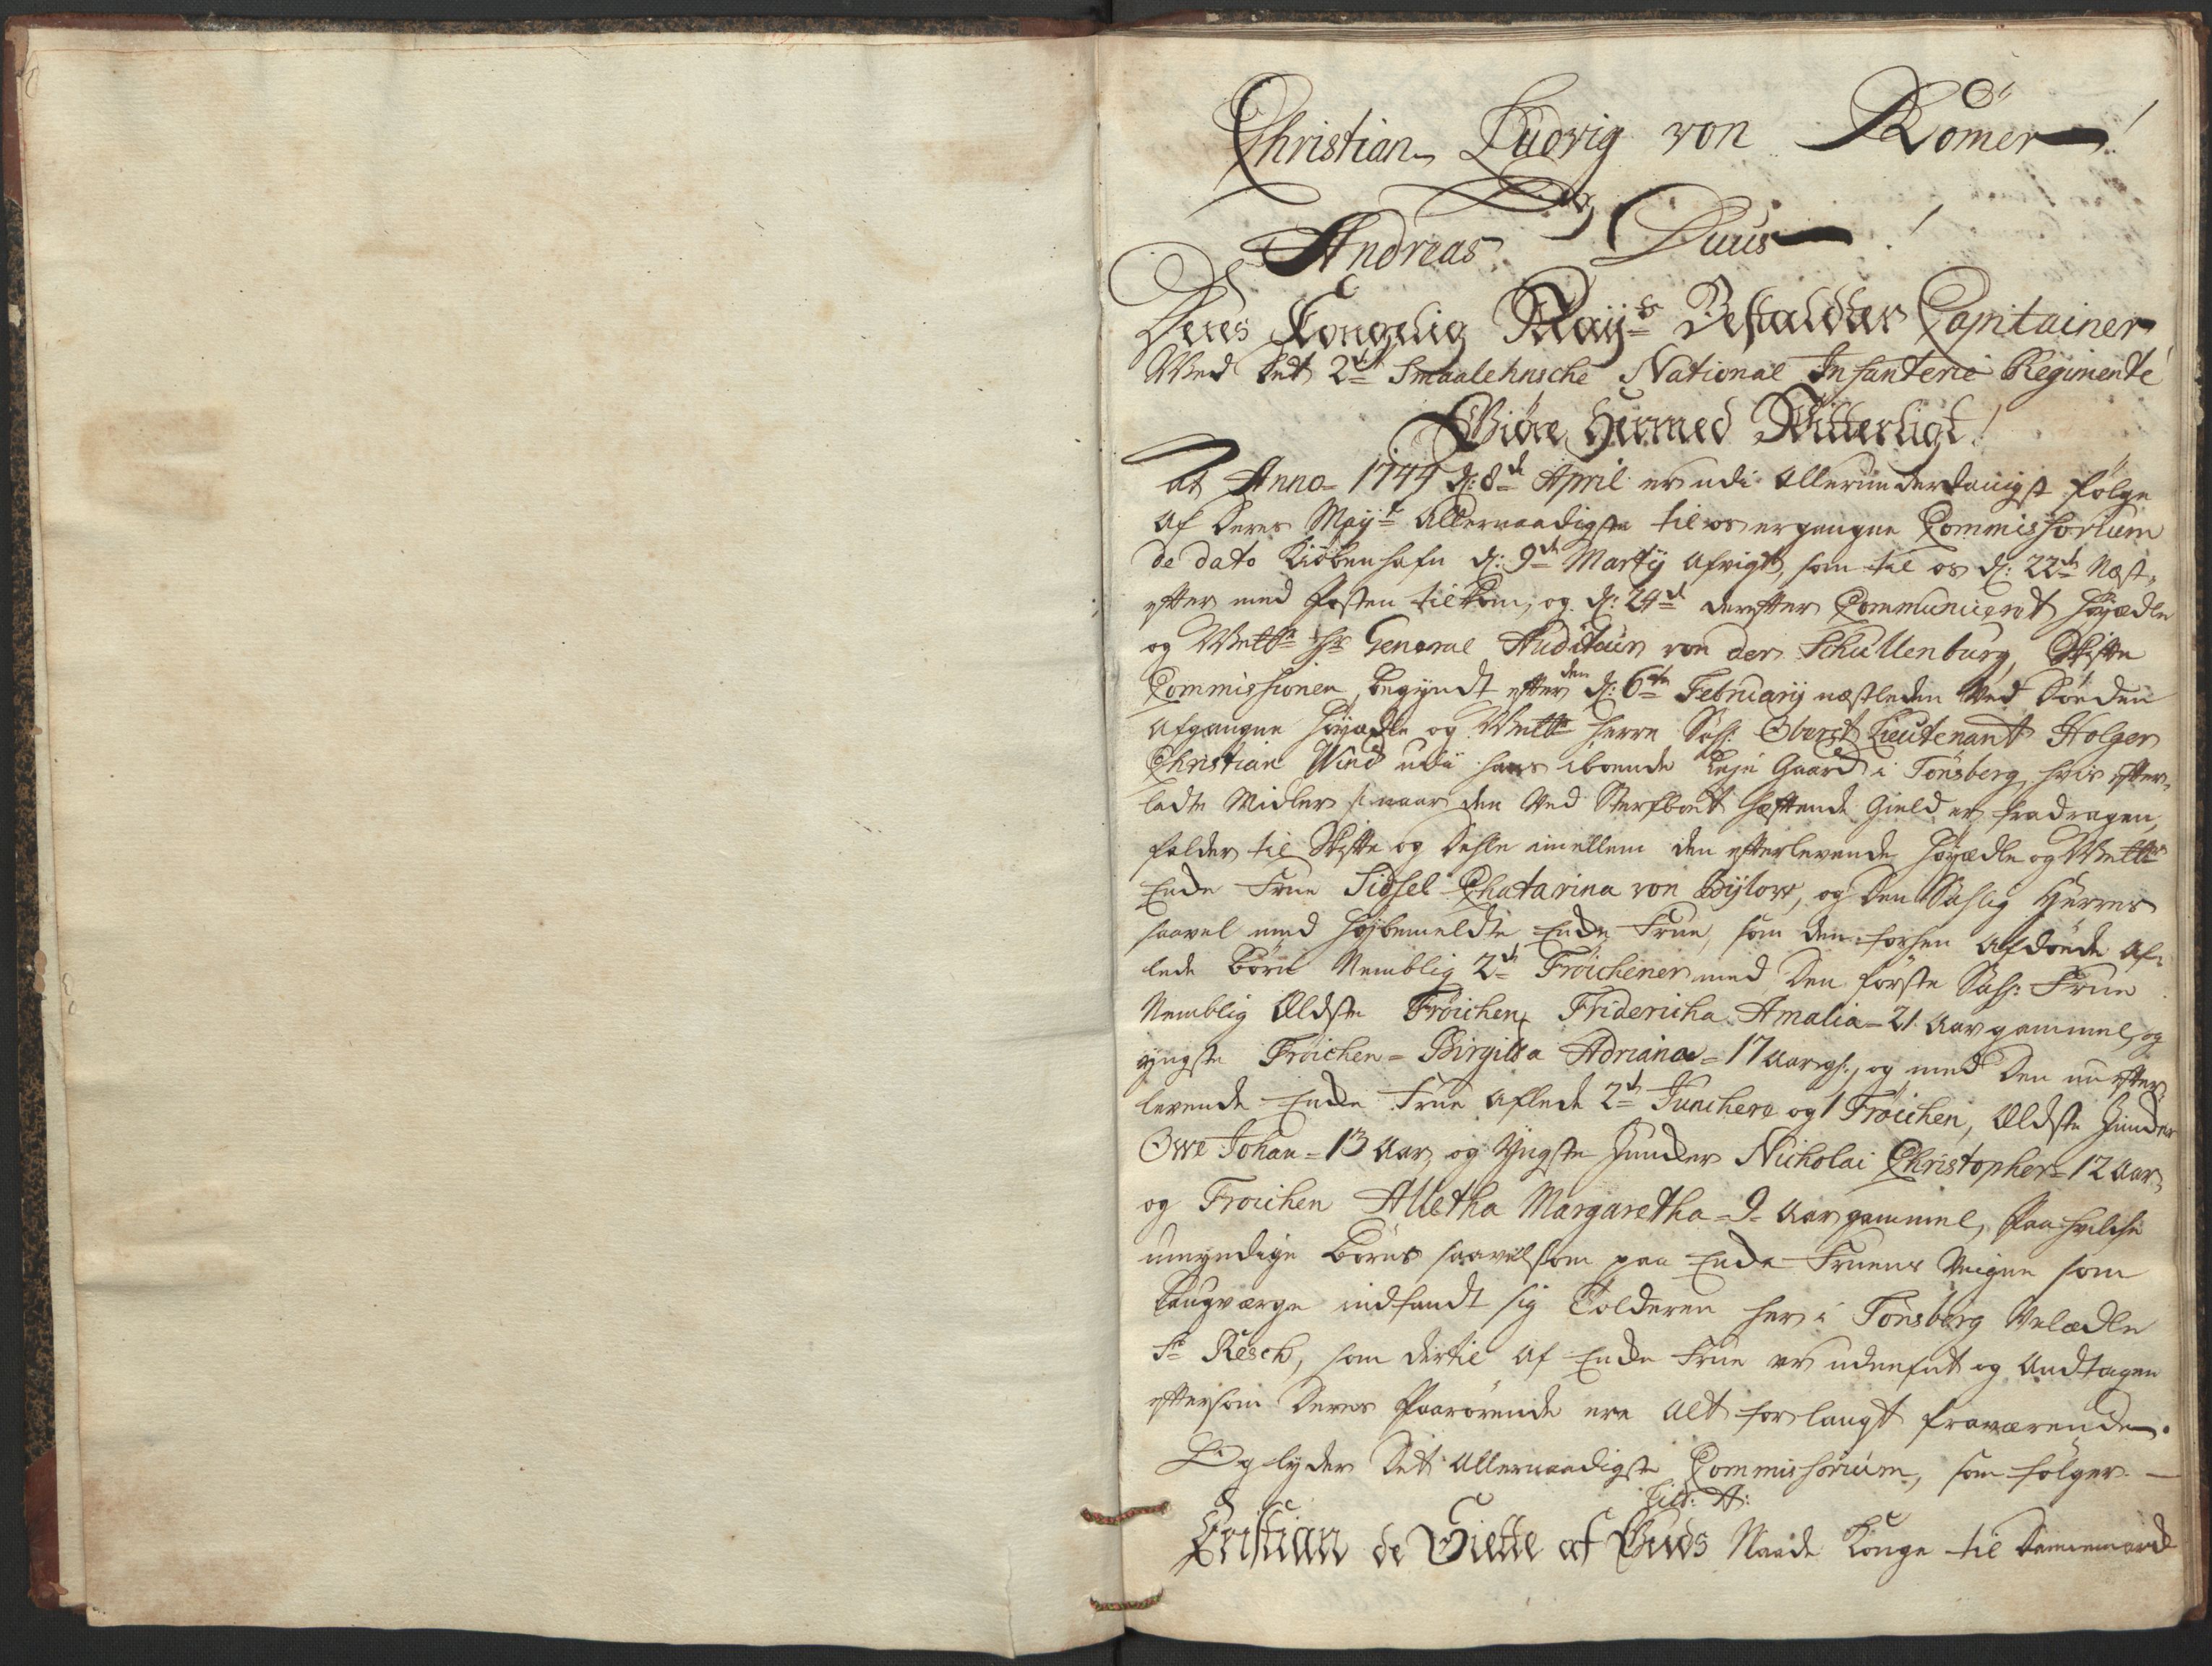 Christian Ludvig von Römer
og
Andreas Duus
Deres Kongelig Mayts Bestaldter Capitainer
Ved det 2det Smaalehnsche National Infanterie Regimente
Giöre Hermed Witterligt!
At Anno 1744 d: 8de April er udi Allerunderdanigst fölge
af Deres Mayts Allernaadigste til os ergangne Commissorium
de dato Kiöbenhafn d: 9de Martij afvigt, som til os d: 22de Næst
efter med Posten tilkom, og d: 24de derefter Communiceret Höyædle
og Welb: Hr General Auditeur von der Schullenburg, Skifte
Commissionen begyndt efter den d: 6te February næstleden Ved Döden
afgangne Höyædle og Welb: Herre Sal: Oberst Lieutenant Holger
Christian Wind udi hans iboende Leje Gaard i Tönsberg, hvis efter
ladte Midler naar den Ved Sterfboet hæftende Gield er fradragen,
falder til Skifte og Dehle imellem den efterlevende Höyædle og Welb:
Enke Frue Sidsel Chatarina von Bÿlow, og den Sahlig Herres
saavel med Höjbemeldte Enke Frue, som den forhen afdöede af-
lede Börn Nemblig 2de Fröichener med den förste Sal: Frue
Nemblig Ældste Fröichen Fridericha Amalia 21 aar gammel, og
yngste Fröichen Birgitta Adriana 17 aar gl:, og med den nu efter
levende Enke Frue aflede 2de Junchere og 1 Fröichen, Ældste Juncker
Owe Johan 13 Aar, og Yngste Juncker Nicholai Christopher 12 Aar,
og Fröichen Alletha Margaretha 9 Aar gammel, Paa hvilche
umyndige Börns saavelsom paa Enke Fruens Veigne som
Laugværge indfandt sig Tolderen her i Tönsberg Velædle
Sr Resch, som dertil af Enke Frue er udnefnt og Andtagen
eftersom Deres Paarörende ere alt for langt fraværende.
Og lyder Det Allernaadigste Commissorium, som fölger
Litr: A:
Cristian de Siette af Guds Naade Konge til Dannemarck